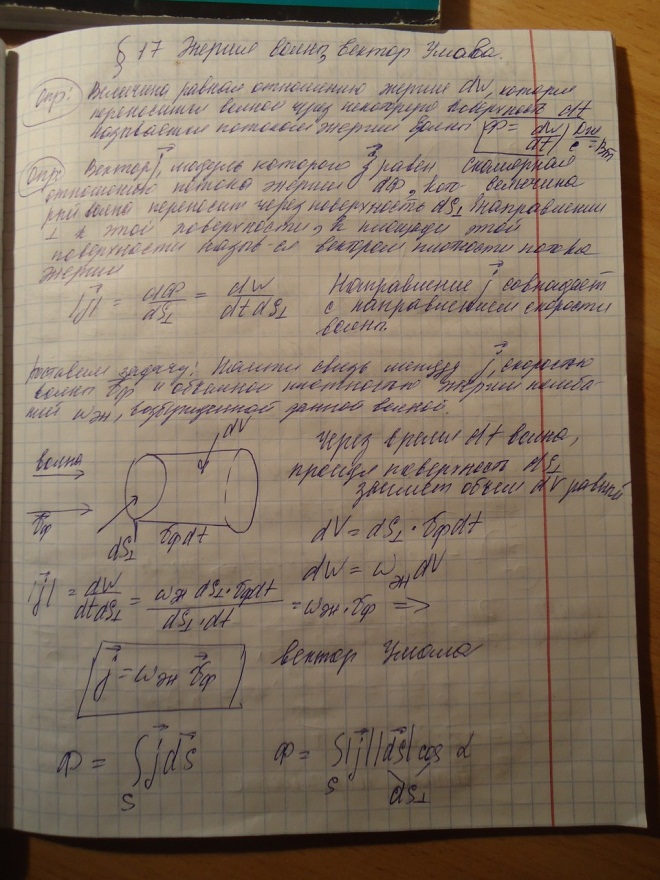 § 17 Энергия волны, вектор Умова.
Опр: Величина равная отношению энергии dW, которая
переносится волной через некоторую поверхность dt
называется потоком энергии волны Φ = dW/dt Дж/с = Вт
Опр: Вектор j⃗, модуль которого j⃗ равен скалярная
отношению потока энергии dΦ, кот. величина
рый волна переносит через поверхность dS⊥ направлении
⊥ к этой поверхности, к площади этой
поверхности назыв-ся вектором плотности потока
энергии
|j⃗| = dΦ/dS⊥ = dW/dt dS⊥ Направление j⃗ совпадает
с направлением скорости
волны.
Поставим задачу: Найти связь между j⃗, скоростью
волны v⃗ф и объемной плотностью энергии колеба-
ний wэн, возбужденной данной волной.
dV
волна
v⃗ф
dS⊥ vфdt
Через время dt волна,
пройдя поверхность dS⊥
займет объем dV равный
dV = dS⊥ · vфdt
dW = wэн dV
|j⃗| = dW/dt dS⊥ = wэн dS⊥ · vфdt/dS⊥ · dt = wэн · vф =>
j⃗ = wэн v⃗ф вектор Умова
Φ = ∫S j⃗ dS⃗ Φ = ∫S |j⃗| |dS⃗| cos α
dS⊥